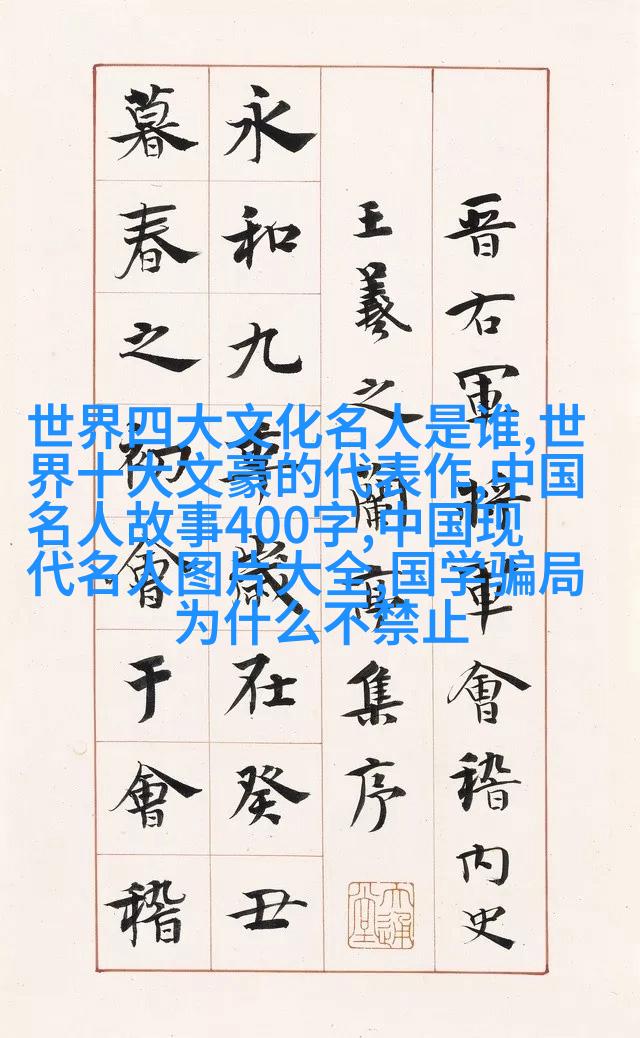 晋右軍將軍會稽内史
王羲之蘭亭集序
永和九年歲在癸丑
暮春之初會于會稽
世界四大文化名人是谁,世
界十大文豪的代表作,中国
名人故事400字,中国现
代名人图片大全,国学骗局
为什么不禁止